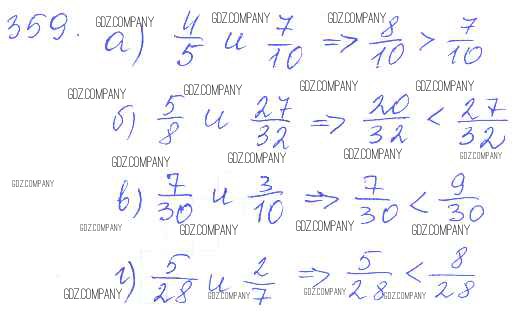 359. а) 4/5 и 7/10 => 8/10 > 7/10
б) 5/8 и 27/32 => 20/32 < 27/32
в) 7/30 и 3/10 => 7/30 < 9/30
г) 5/28 и 2/7 => 5/28 < 8/28
GDZ.COMPANY GDZ.COMPANY GDZ.COMPANY
GDZ.COMPANY GDZ.COMPANY GDZ.COMPANY
GDZ.COMPANY GDZ.COMPANY GDZ.COMPANY GDZ.COMPANY
GDZ.COMPANY
GDZ.COMPANY GDZ.COMPANY GDZ.COMPANY GDZ.COMPANY
GDZ.COMPANY GDZ.COMPANY GDZ.COMPANY GDZ.COMPANY